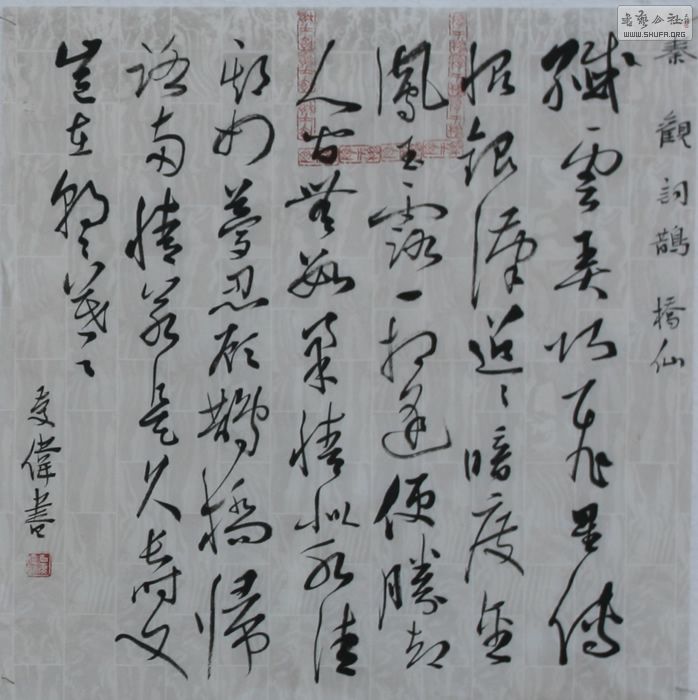 書藝公社
WWW.SHUFA.ORG
秦觀詞鵲橋仙
纖雲弄巧飛星傳
恨銀漢迢〻暗度金
風玉露一相逢便勝却
人間無數柔情似水佳
期如夢忍顧鵲橋歸
路兩情若是久長時又
豈在朝〻暮〻
偉書